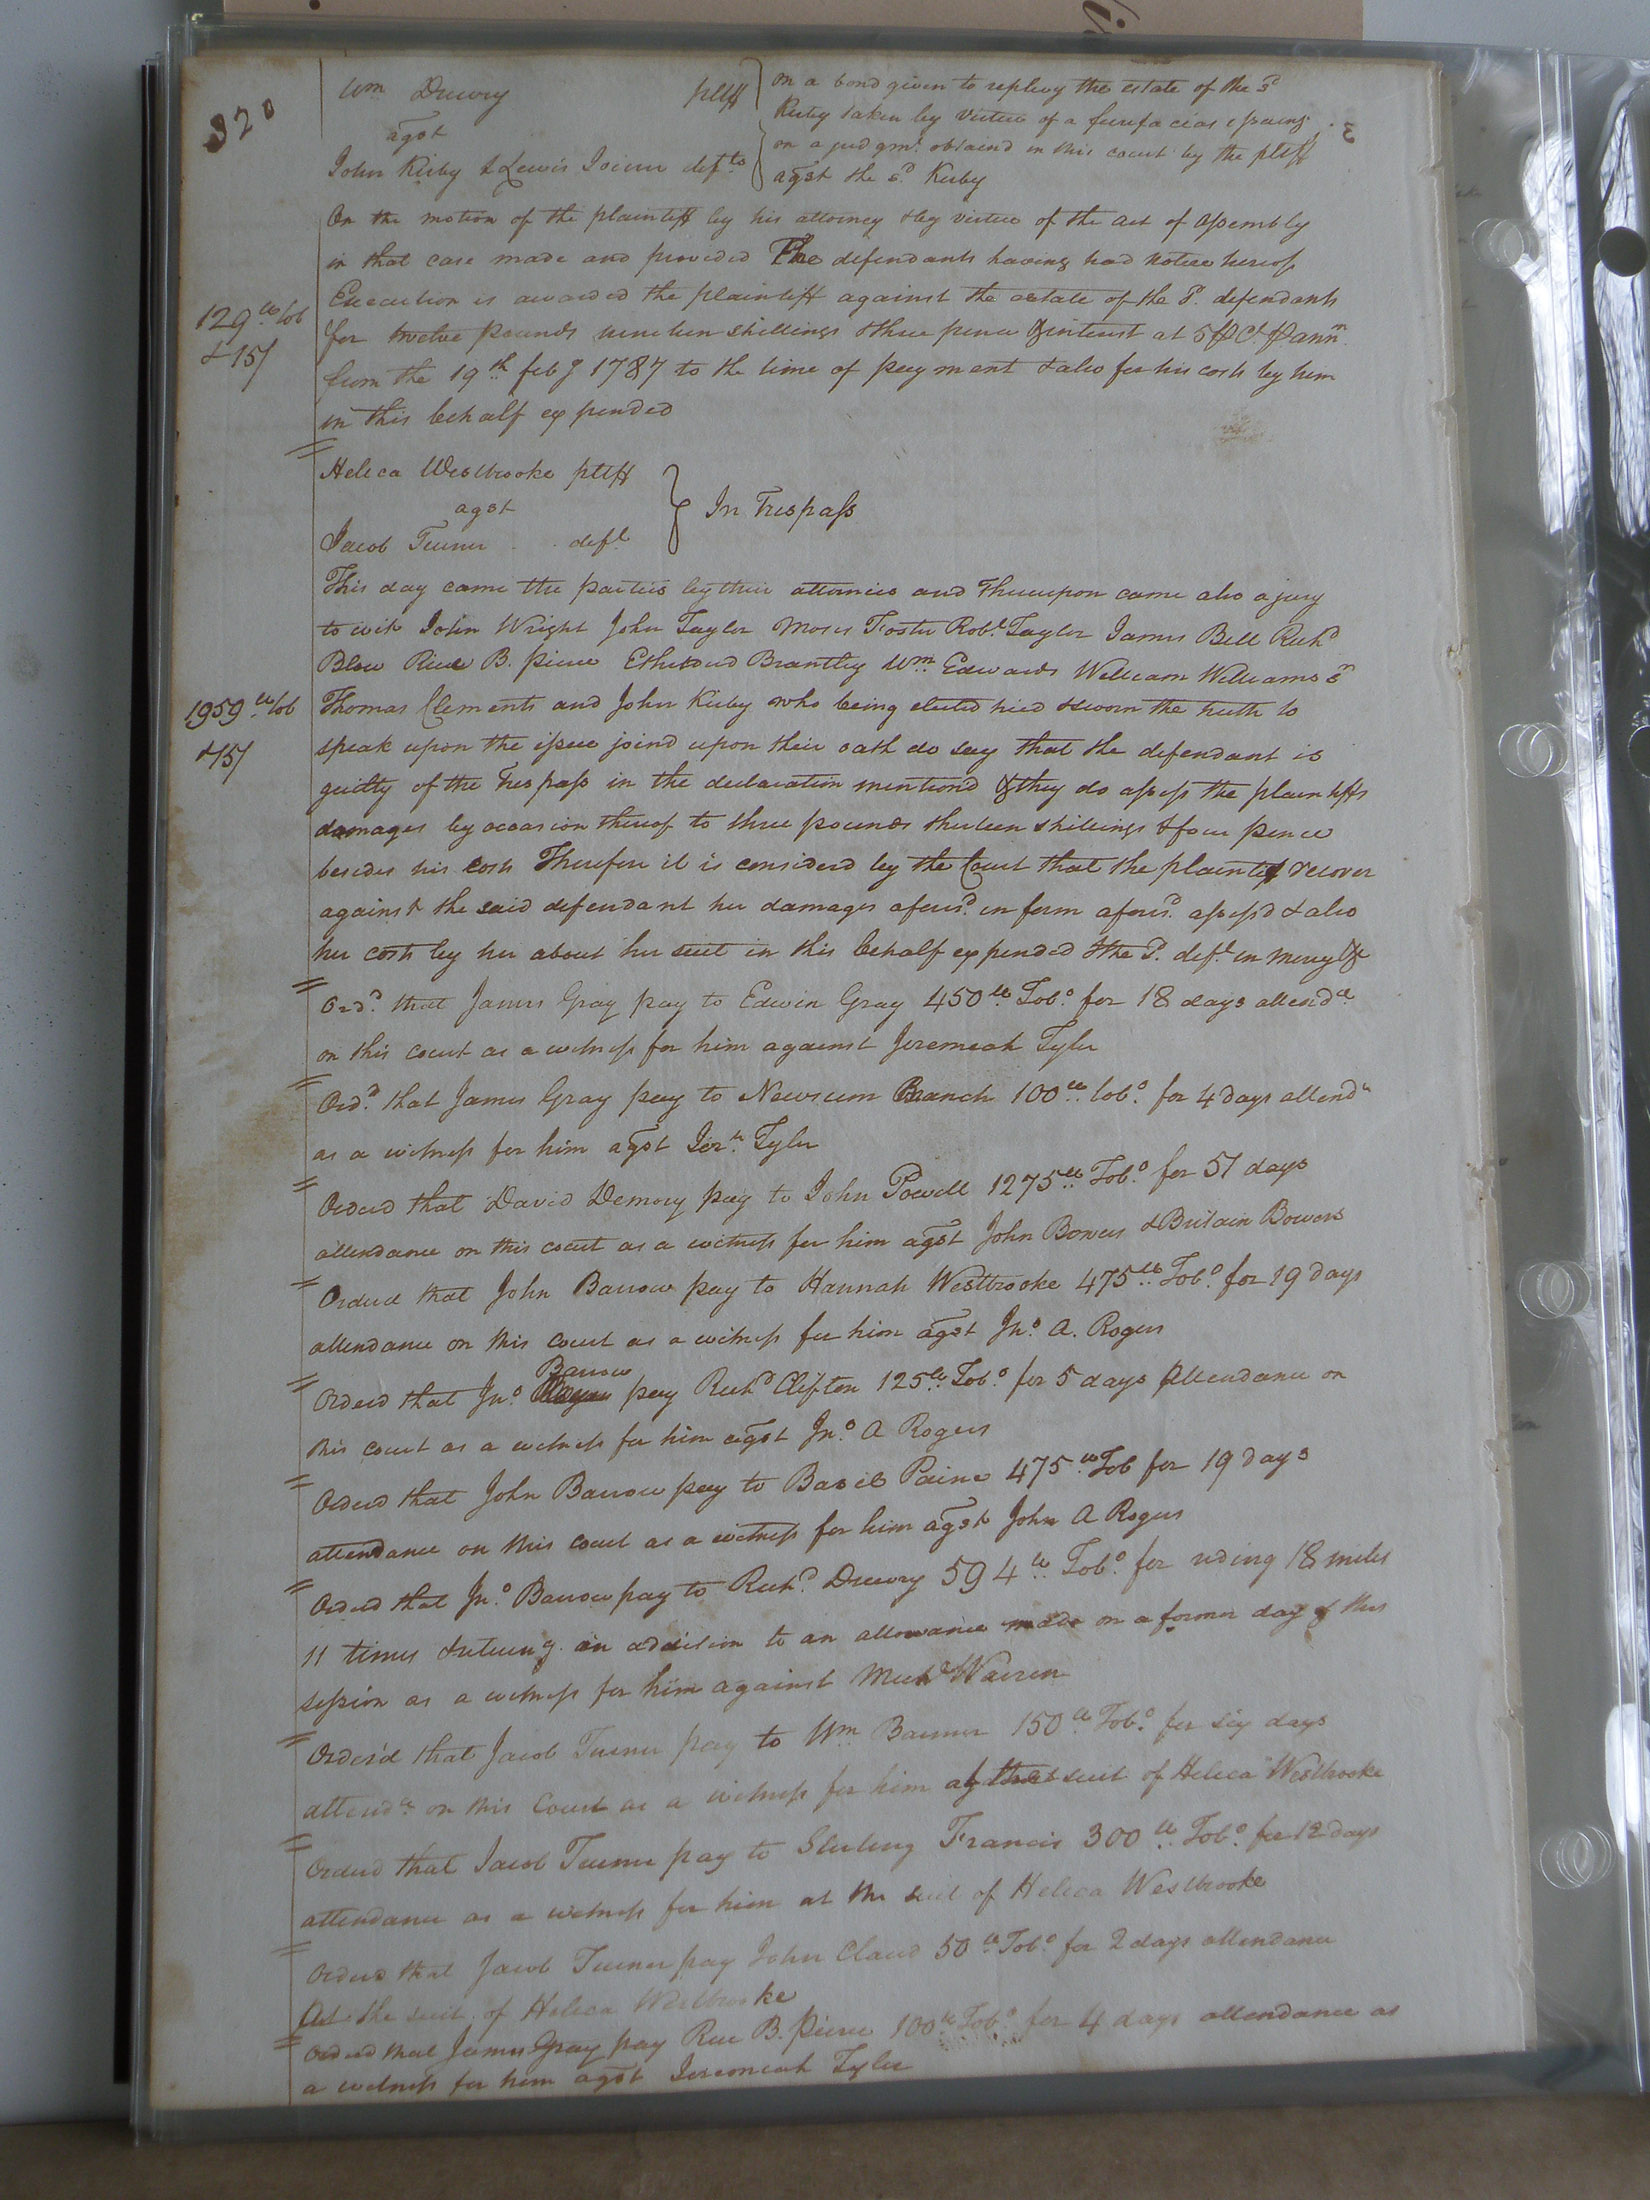 320
Wm Drewry pltff
agst
John Kirby & Lewis Joiner defts
on a bond given to replevy the estate of the sd
Kirby taken by virtue of a fierefacias issuing
on a judgmt. obtaind in this court by the pltff
agst the sd Kirby
On the motion of the plaintiff by his attorney & by virtue of the act of assembly
in that case made and provided The defendants having had notice hereof
Execution is awarded the plaintiff against the estate of the sd. defendants
129 lb tob
& 15/
for twelve pounds nineteen shillings & three pence & interest at 5 P Ct. P ann
from the 19th feby 1787 to the time of payment & also for his costs by him
in this behalf expended
Heleca Westbrooke pltff
agst
Jacob Turner deft
In Trespass
This day came the parties by their attornies and Thereupon came also a jury
to wit John Wright John Taylor Moses Foster Robt. Taylor James Bell Richd
Blow Rice B. pierce Etheldred Brantley Wm Edwards William Williams sr
1959 lb tob
& 15/
Thomas Clements and John Kirby who being elected tried & sworn the truth to
speak upon the issue joind upon their oath do say that the defendant is
guilty of the Trespass in the declaration mention'd & they do assess the plaintiffs
damages by occasion thereof to three pounds thirteen shillings & four pence
besides his costs Therefore it is considerd by the Court that the plaintif recover
against the said defendant her damages aforesd. in form aforesd. assess'd & also
her costs by her about her suit in this behalf expended & the sd. deft. in mercy &c
Ordd. that James Gray pay to Edwin Gray 450 lb Tobo. for 18 days attendce
on this court as a witness for him against Jeremeah Tyler
Ordd. that James Gray pay to Newsum Branch 100 lb tobo. for 4 days attendce
as a witness for him agst Jerh. Tyler
Orderd that David Demory pay to John Powell 1275 lb Tobo. for 51 days
attendance on this court as a witness for him agst John Bowers & Britain Bowers
Orderd that John Barrow pay to Hannah Westbrooke 475 lb Tobo. for 19 days
attendance on this court as a witness for him agst Jno. A. Rogers
Orderd that Jno. Barrow pay Richd Clifton 125 lb Tobo. for 5 days Attendance on
this court as a witness for him agst Jno. A Rogers
Orderd that John Barrow pay to Basil Paine 475 lb Tob for 19 days
attendance on this court as a witness for him agst John A Rogers
Orderd that Jno. Barrow pay to Richd. Drewry 594 lb Tobo. for riding 18 miles
11 times & returng. in addition to an allowance made on a former day of this
session as a witness for him against Michl Warren
Order'd that Jacob Turner pay to Wm Barner 150 lb Tobo. for six days
attendce on this Court as a witness for him at the suit of Heleca Westbrooke
Orderd that Jacob Turner pay to Sterling Francis 300 lb Tobo. for 12 days
attendance as a witness for him at the suit of Heleca Westbrooke
Orderd that Jacob Turner pay John Claud 50 lb Tobo. for 2 days attendance
At the suit of Heleca Westbrooke
Orderd that James Gray pay Rice B. Pierce 100 lb Tobo for 4 days attendance as
a witness for him agst Jeremeah Tyler